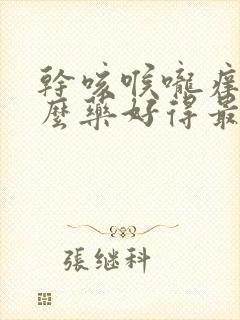 幹咳喉嚨癢
麼藥好得最
張继科